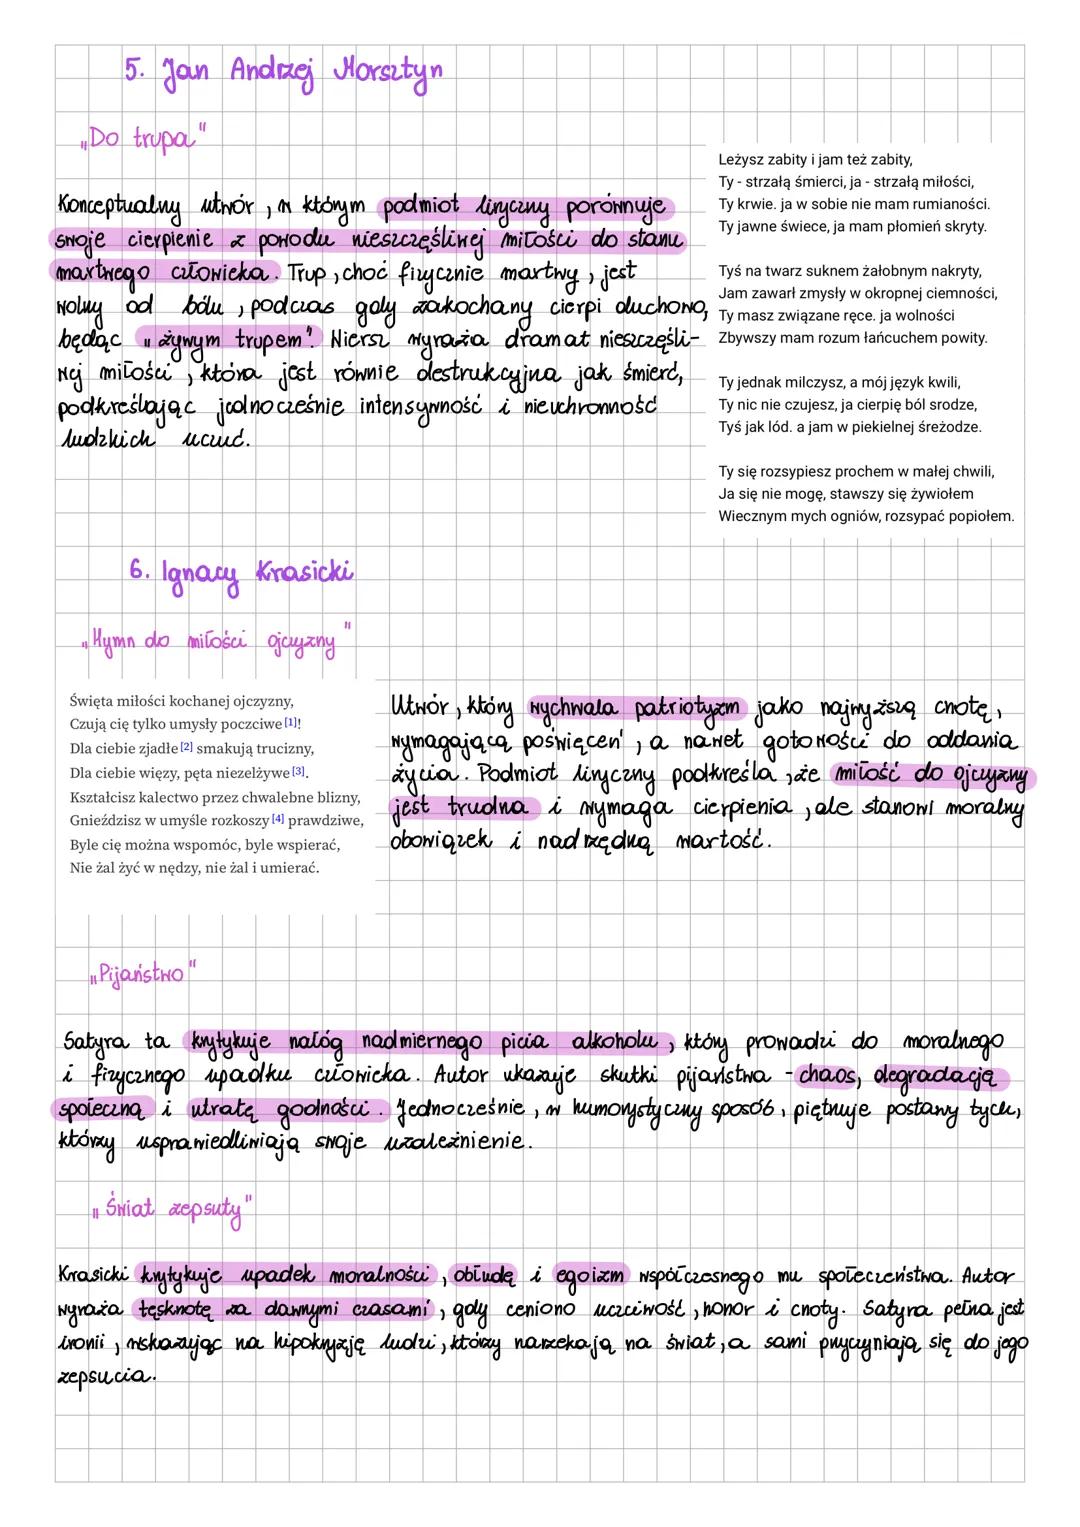 5. Jan Andrzej Morsztyn
„Do trupa"
Konceptualny utwór, w którym podmiot liryczny porównuje
swoje cierpienie z powodu nieszczęśliwej miłości do stanu
martwego człowieka. Trup, choć fizycznie martwy, jest
wolny od bólu, podczas gdy zakochany cierpi duchowo,
będąc „żywym trupem". Wiersz wyraża dramat nieszczęśli-
wej miłości, która jest równie destrukcyjna jak śmierć,
podkreślając jednocześnie intensywność i nieuchronność
ludzkich uczuć.
Leżysz zabity i jam też zabity,
Ty - strzałą śmierci, ja - strzałą miłości,
Ty krwie. ja w sobie nie mam rumianości.
Ty jawne świece, ja mam płomień skryty.
Tyś na twarz suknem żałobnym nakryty,
Jam zawarł zmysły w okropnej ciemności,
Ty masz związane ręce. ja wolności
Zbywszy mam rozum łańcuchem powity.
Ty jednak milczysz, a mój język kwili,
Ty nic nie czujesz, ja cierpię ból srodze,
Tyś jak lód. a jam w piekielnej śreżodze.
Ty się rozsypiesz prochem w małej chwili,
Ja się nie mogę, stawszy się żywiołem
Wiecznym mych ogniów, rozsypać popiołem.
6. Ignacy Krasicki
„Hymn do miłości ojczyzny"
Święta miłości kochanej ojczyzny,
Czują cię tylko umysły poczciwe [1]!
Dla ciebie zjadłe [2] smakują trucizny,
Dla ciebie więzy, pęta niezelżywe [3].
Kształcisz kalectwo przez chwalebne blizny,
Gnieździsz w umyśle rozkoszy [4] prawdziwe,
Byle cię można wspomóc, byle wspierać,
Nie żal żyć w nędzy, nie żal i umierać.
Utwór, który wychwala patriotyzm jako najwyższą cnotę,
wymagającą poświęceń, a nawet gotowości do oddania
życia. Podmiot liryczny podkreśla, że miłość do ojczyzny
jest trudna i wymaga cierpienia, ale stanowi moralny
obowiązek i nadrzędną wartość.
„Pijaństwo"
Satyra ta krytykuje nałóg nadmiernego picia alkoholu, który prowadzi do moralnego
i fizycznego upadku człowieka. Autor ukazuje skutki pijaństwa - chaos, degradację
społeczną i utratę godności. Jednocześnie, w humorystyczny sposób, piętnuje postawy tych,
którzy usprawiedliwiają swoje uzależnienie.
„Świat zepsuty"
Krasicki krytykuje upadek moralności, obłudę i egoizm współczesnego mu społeczeństwa. Autor
wyraża tęsknotę za dawnymi czasami, gdy ceniono uczciwość, honor i cnoty. Satyra pełna jest
ironii, wskazując na hipokryzję ludzi, którzy narzekają na świat, a sami przyczyniają się do jego
zepsucia.